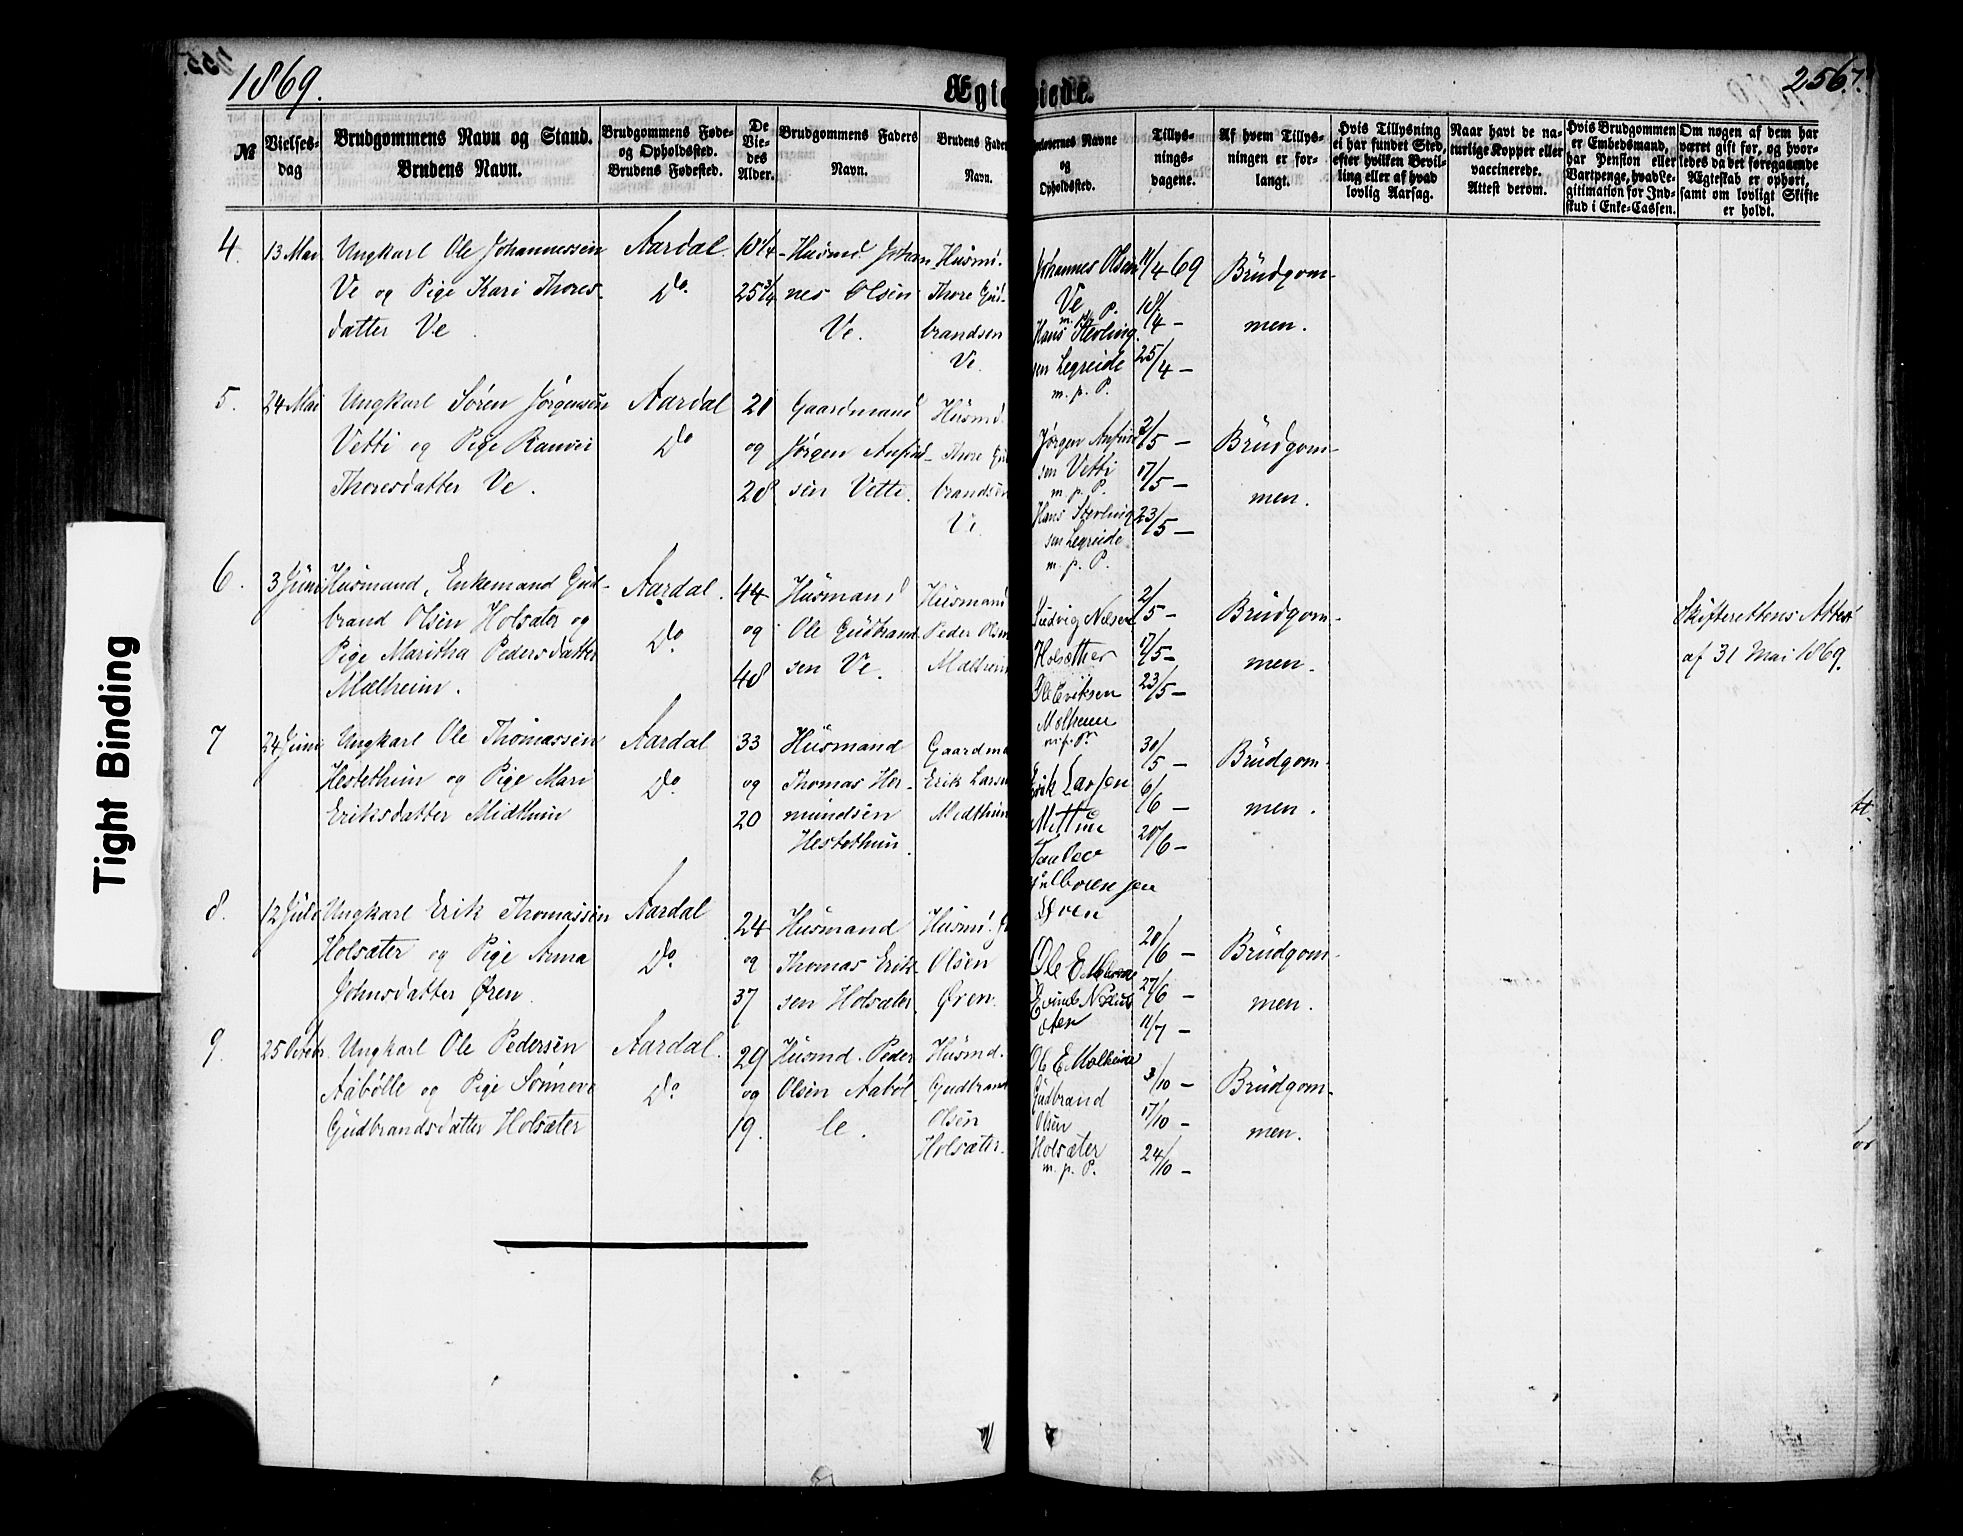 1869.
Ægteviede.
256.
№
Vielses-
dag
Brudgommens Navn og Stand.
Brudens Navn.
Brudgommens Føde-
og Opholdssted.
Brudens Fødested.
De
Vie-
des
Alder.
Brudgommens Faders
Navn.
Brudens Fader
Navn.
Forlovernes Navne
og
Opholdssted.
Tillys-
nings-
dagene.
Af hvem Tillys-
ningen er for-
langt.
Hvis Tillysning
ei har fundet Sted,
efter hvilken Bevil-
ling eller af hvad
lovlig Aarsag.
Naar havt de na-
turlige Kopper eller
vaccinerede.
Attest derom.
Hvis Brudgommen
er Embedsmand,
har Pension eller
Vartpenge, hvad Le-
gitimation for Ind-
skud i Enke-Cassen.
Om nogen af dem har
været gift før, og hvor-
ledes da det foregaaende
Ægteskab er ophørt,
samt om lovligt Skifte
er holdt.
4.
13 Mai
Ungkarl Ole Johannessen
Ve og Pige Kari Thores-
datter Ve.
Aardal
Do
18 1/4
25 3/4
Husmd. Johan-
nes Olsen
Ve.
Husmd.
Thore Gud-
brandsen
Ve.
Johannes Olsen
Ve
m. p. P.
Hans Sterling
sen Legreide
m. p. P.
11/4 69
18/4 -
25/4 -
Brudgom-
men.
5.
24 Mai
Ungkarl Søren Jørgensen
Vetti og Pige Ranvei
Thoresdatter Ve.
Aardal
Do
21
og
28
Gaardmand
Jørgen Anfind-
sen Vetti.
Husmd.
Thore Gud
brandsen
Ve.
Jørgen Anfind
sen Vetti
m. p. P.
Hans Sterling
sen Legreide
m. p. P.
2/5 -
17/5 -
23/5 -
Brudgom-
men.
6.
3 Juni
Husmand, Enkemand Gud-
brand Olsen Holsæter og
Pige Maritha Pedersdatter
Mælheim.
Aardal.
Do
44
og
48
Husmand
Ole Gudbrand
sen Ve.
Husmand
Peder Olsen
Mælheim
Ludvig Nilsen
Holsæther
Ole Eriksen
Mælheim
2/5 -
17/5 -
23/5 -
Brudgom-
men.
Skifterettens Attest
af 31 Mai 1869.
7
24 Juni
Ungkarl Ole Thomassen
Hestethun og Pige Mari
Eriksdatter Midthun
Aardal
Do
33
og
20
Husmand
Thomas Her-
mundsen
Hestethun.
Gaardmd
Erik Larsen
Midthun
Erik Larsen
Mittun
Øren
30/5 -
6/6 -
20/6 -
Brudgom-
men.
8.
12 Juli
Ungkarl Erik Thomassen
Holsæter og Pige Anna
Johnsdatter Øren.
Aardal
Do
24
og
37
Husmand
Thomas Erik-
sen Holsæter.
Husmd.
Olsen
Øren.
Ole E Mælheim
20/6 -
27/6 -
11/7 -
Brudgom-
men.
9.
25 Octobr.
Ungkarl Ole Pedersen
Aabølle og Pige Sønneve
Gudbrandsdatter Holsæter
Aardal.
Do
29
og
19.
Husmd. Peder
Olsen Aabøl-
le.
Husmd.
Gudbrand
Olsen
Holsæter.
Ole E Mælheim
Gudbrand
Olsen
Holsæter
m. p. P.
3/10 -
17/10 -
24/10 -
Brudgom-
men.
Tight Binding